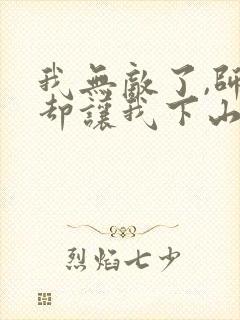 我無敵了,師
却讓我下山
烈焰七少